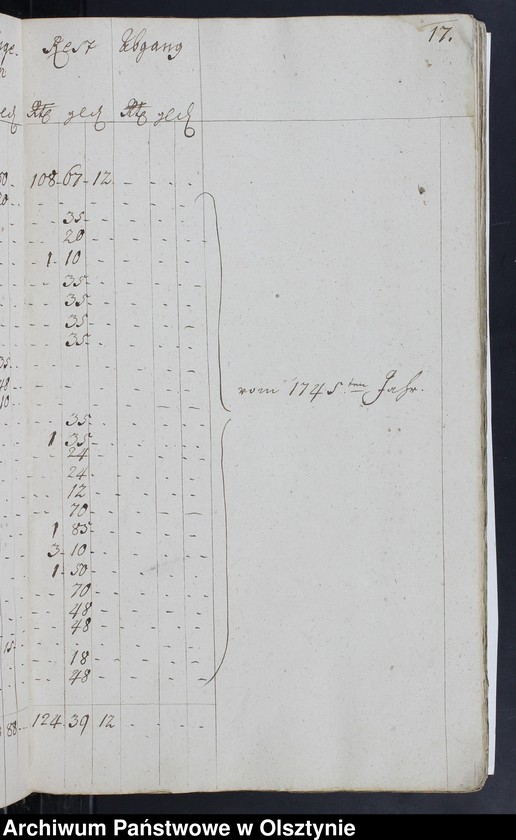 17.
Rest Abgang
108. 67. 12.
35.
20
1. 10
35.
35.
35.
35.
35.
40.
10.
vom 1745ten Jahr.
35.
1 35.
24
24
12
70.
1 85
3. 10
1. 50
70
48
48
15.
18
48
88. 124. 39 12
Archiwum Państwowe w Olsztynie